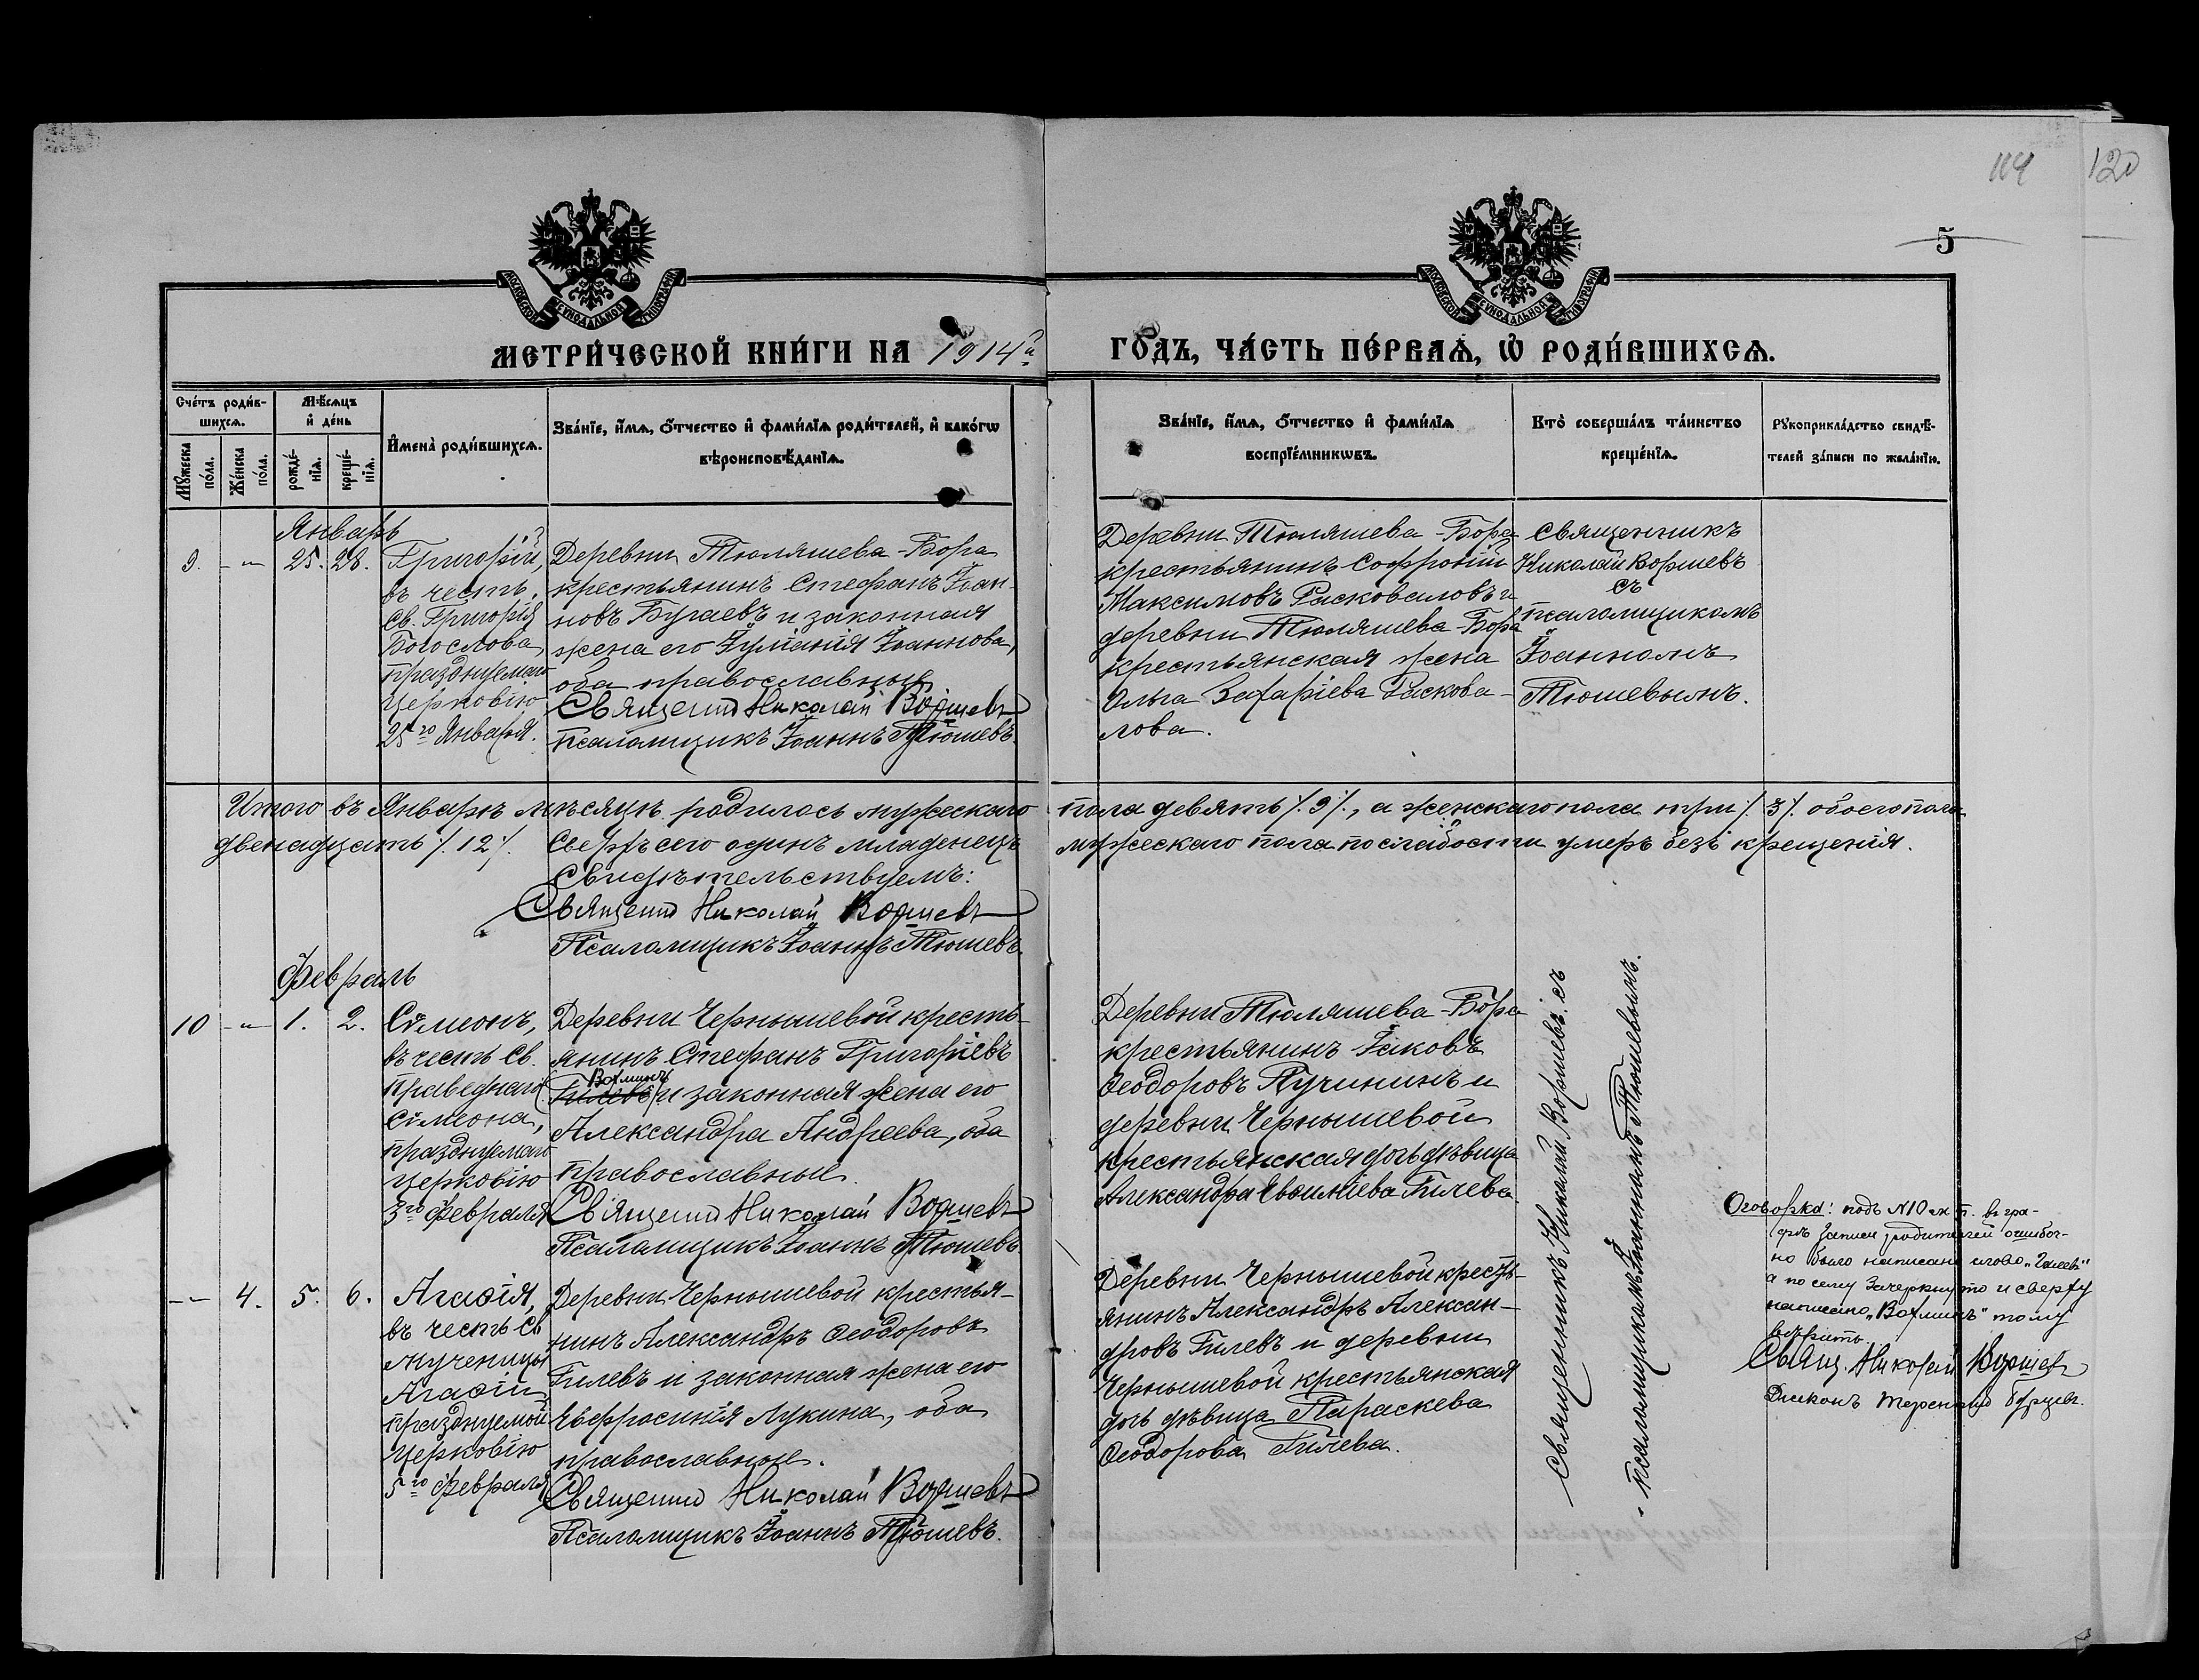 119
120
5
МОСКОВСКОЙ СѴНОДАЛЬНОЙ ТИПОГРАФІИ
МОСКОВСКОЙ СѴНОДАЛЬНОЙ ТИПОГРАФІИ
МЕТРИ́ЧЕСКОЙ КНИ́ГИ НА 1914й
ГО́ДЪ, ЧА́СТЬ ПЕ́РВАѦ, Ѡ҆ РОДИ́ВШИХСѦ.
Сче́тъ роди́в-
шихсѧ.
Мѣ́сѧцъ
и҆ де́нь
Мꙋ́жеска по́ла.
Же́нска по́ла.
рожде́-нїѧ.
креще́-нїѧ.
И҆мена̀ роди́вшихсѧ.
Зва́нїе, и҆́мѧ, ѻ҆́тчество и҆ фами́лїѧ роди́телей, и҆ како́гѡ
вѣроисповѣ́данїѧ.
Зва́нїе, и҆́мѧ, ѻ҆́тчество и҆ фами́лїѧ
воспрїе́мникѡвъ.
Кто̀ соверша́лъ та́инство
креще́нїѧ.
Рꙋкоприкла́дство свидѣ́-
телей за́писи по жела́нїю.
Январь
9. -"- 25. 28.
Григорій,
въ честь
Св. Григорія
Богослова,
празднуемаго
Церковію
25го Января.
Деревни Тюляшева-Бора
крестьянинъ Стефанъ Іоан-
новъ Бугаевъ и законная
жена его Іуліанія Іоаннова,
оба православные
Священно Николай Воршевъ
Псаломщикъ Іоаннъ Тюшевъ.
Деревни Тюляшева-Бора
крестьянинъ Софроній
Максимовъ Расковаловъ и
деревни Тюляшева-Бора
крестьянская жена
Ольга Захаріева Раскова-
лова.
Священникъ
Николай Воршевъ
съ
псаломщикомъ
Іоанномъ
Тюшевымъ.
Итого въ Январѣ мѣсяцѣ родилось мужескаго пола девять /.9/., а женскаго пола три /.3/. обоего пола
двенадцать /.12/. Сверхъ сего одинъ младенецъ мужескаго пола по слабости умеръ безъ крещенія.
Свидѣтельствуемъ:
Священно Николай Воршевъ
Псаломщикъ Іоаннъ Тюшевъ.
Февраль
10 -"- 1. 2.
Сѵмеонъ,
въ честь Св.
Праведнаго
Сѵмеона,
празднуемаго
церковію
3го Февраля
Деревни Чернышевой кресть-
янинъ Стефанъ Григоріевъ
Вахминъ
Гилевъ и законная жена его
Александра Андреева, оба
православные.
Священно Николай Воршевъ
Псаломщикъ Іоаннъ Тюшевъ.
Деревни Тюляшева-Бора
крестьянинъ Іаковъ
Ѳеодоровъ Пучининъ и
деревни Чернышевой
крестьянская дочь дѣвица
Александра Евѳиміева Гилева.
Священникъ Николай Воршевъ. съ
псаломщикомъ Іоанномъ Тюшевымъ.
Оговорка: подъ №10 м. п. въ гра-
фѣ записи родителей ошибоч-
но было написано слово „Гилевъ"
а по сему Зачеркнуто и сверху
написано „Вахминъ" тому
вѣрить
Свящ. Николай Воршевъ
Дьяконъ
-- 4. 5. 6.
Агаѳія,
въ честь Св
Мученицы
Агаѳіи
празднуемой
Церковію
5го Февраля
Деревни Чернышевой крестья-
нинъ Александръ Ѳеодоровъ
Гилевъ и законная жена его
Евфросинія Лукина, оба
православные.
Священно Николай Воршевъ
Псаломщикъ Іоаннъ Тюшевъ.
Деревни Чернышевой кресть-
янинъ Александръ Алексан-
дровъ Гилевъ и деревни
Чернышевой крестьянская
дочь дѣвица Параскева
Ѳеодорова Гилева.